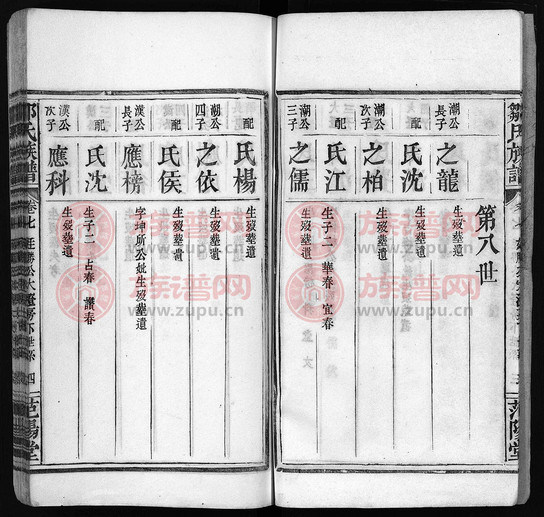 鄒氏族譜
范陽堂
第八世
潮公長子
之龍
生歿塟遺
配
氏沈
生歿塟遺
潮公次子
之柏
生歿塟遺
配
氏江
生子二 華春 宜春
潮公三子
之儒
生歿塟遺
配
氏楊
生歿塟遺
潮公四子
之依
生歿塟遺
配
氏侯
生歿塟遺
漢公長子
應榜
字坤所公妣生歿塟遺
配
氏沈
生子二 占春 讚春
漢公次子
應科
生歿塟遺
氏族譜
卷七
四
范陽堂
族谱网
www.zupu.cn
族谱网
www.zupu.cn